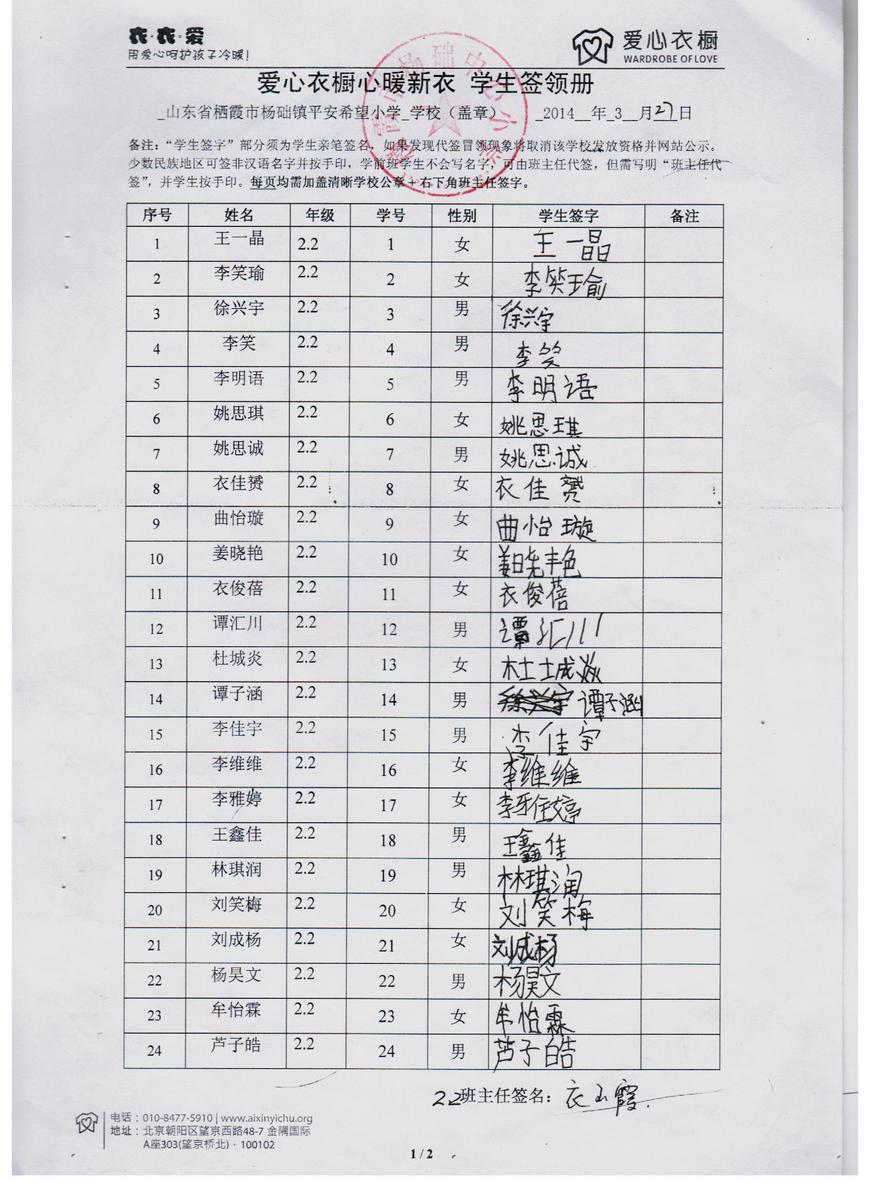 衣·衣·爱
用爱心呵护孩子冷暖!
爱心衣橱
WARDROBE OF LOVE
爱心衣橱心暖新衣 学生签领册
_山东省栖霞市杨础镇平安希望小学_学校（盖章） _2014__年_3__月27日
备注：“学生签字”部分须为学生亲笔签名，如果发现代签冒领现象将取消该学校发放资格并网站公示。
少数民族地区可签非汉语名字并按手印，学前班学生不会写名字，可由班主任代签，但需写明“班主任代
签”，并学生按手印。每页均需加盖清晰学校公章+右下角班主任签字。
序号 姓名 年级 学号 性别 学生签字 备注
1 王一晶 2.2 1 女 王一晶
2 李笑瑜 2.2 2 女 李笑瑜
3 徐兴宇 2.2 3 男 徐兴宇
4 李笑 2.2 4 男 李笑
5 李明语 2.2 5 男 李明语
6 姚思琪 2.2 6 女 姚思琪
7 姚思诚 2.2 7 男 姚思诚
8 衣佳赟 2.2 8 女 衣佳赟
9 曲怡璇 2.2 9 女 曲怡璇
10 姜晓艳 2.2 10 女 姜晓艳
11 衣俊蓓 2.2 11 女 衣俊蓓
12 谭汇川 2.2 12 男 谭汇川
13 杜城炎 2.2 13 女 杜城炎
14 谭子涵 2.2 14 男 徐兴宇 谭子涵
15 李佳宇 2.2 15 男 李佳宇
16 李维维 2.2 16 女 李维维
17 李雅婷 2.2 17 女 李雅婷
18 王鑫佳 2.2 18 男 王鑫佳
19 林琪润 2.2 19 男 林琪润
20 刘笑梅 2.2 20 女 刘笑梅
21 刘成杨 2.2 21 女 刘成杨
22 杨昊文 2.2 22 男 杨昊文
23 牟怡霖 2.2 23 女 牟怡霖
24 芦子皓 2.2 24 男 芦子皓
2.2班主任签名：衣玉霞
电话：010-8477-5910 | www.aixinyichu.org
地址：北京朝阳区望京西路48-7 金隅国际
A座303(望京桥北) · 100102
1 / 2